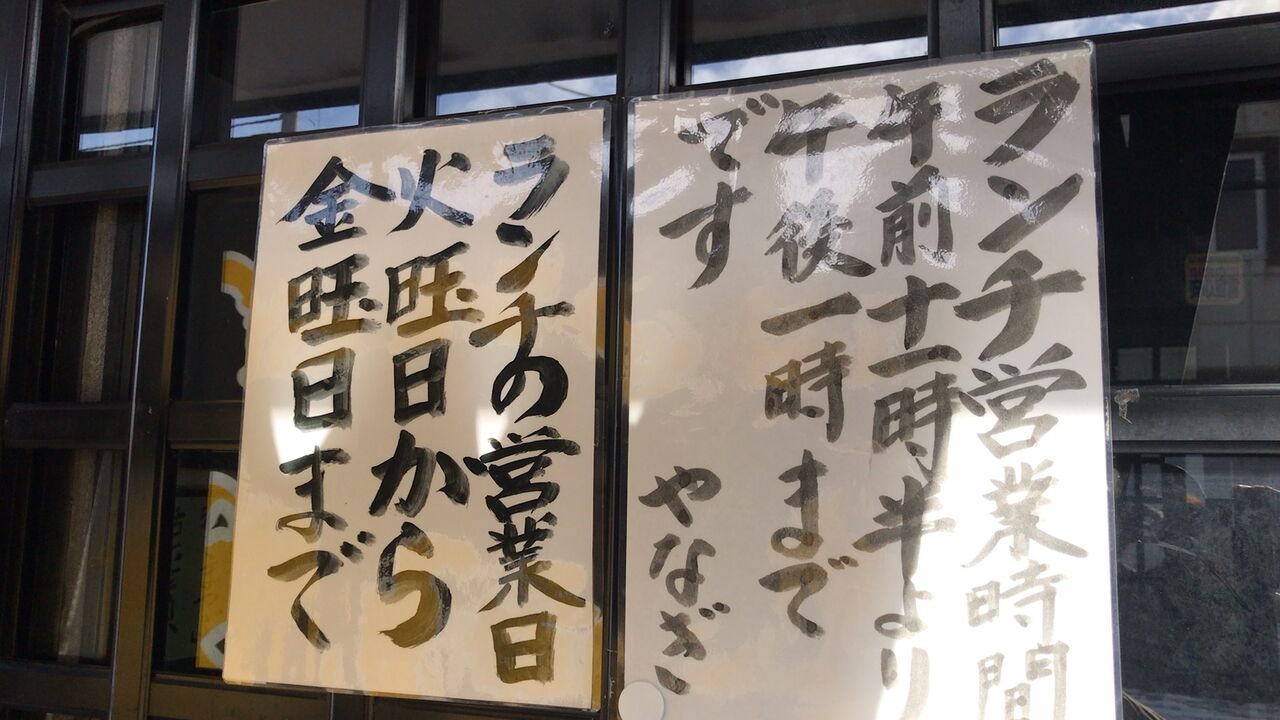 ランチ営業時間
午前十一時半より
午後一時まで
です やなぎ
ランチの営業日
火旺日から
金旺日まで